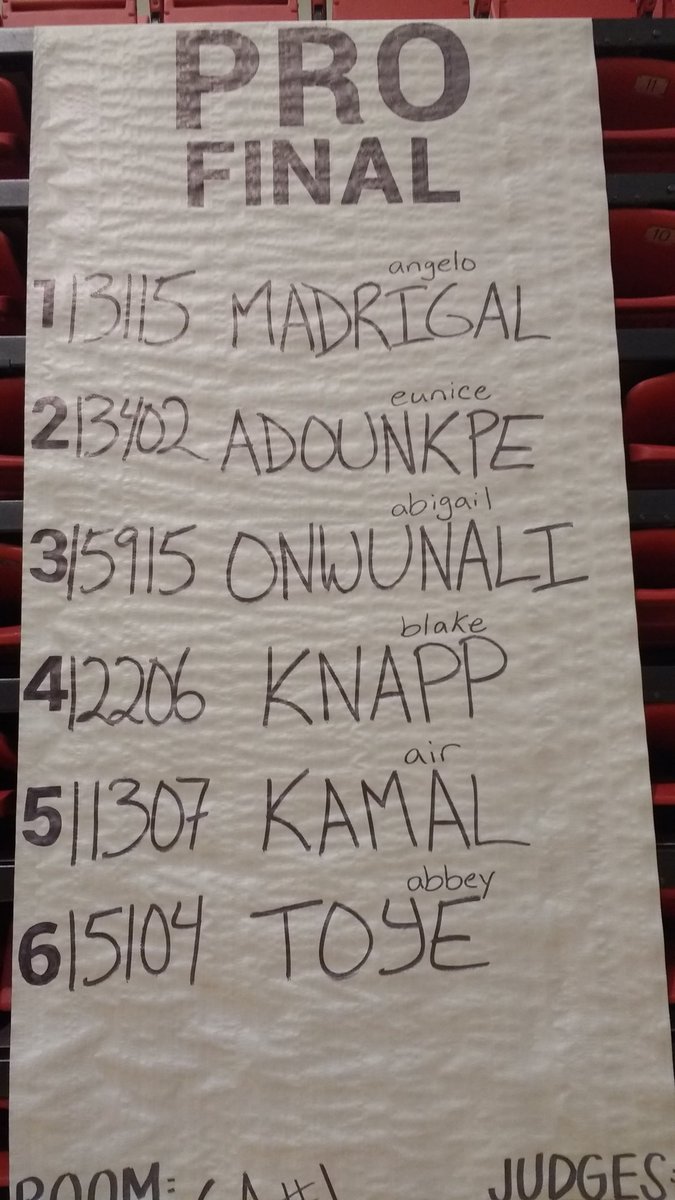 PRO
FINAL
angelo
1 13115 MADRIGAL
eunice
2 13402 ADOUNKPE
abigail
3 15915 ONWUNALI
blake
4 12206 KNAPP
air
5 11307 KAMAL
abbey
6 15104 TOYE
ROOM: JUDGES:
11
10